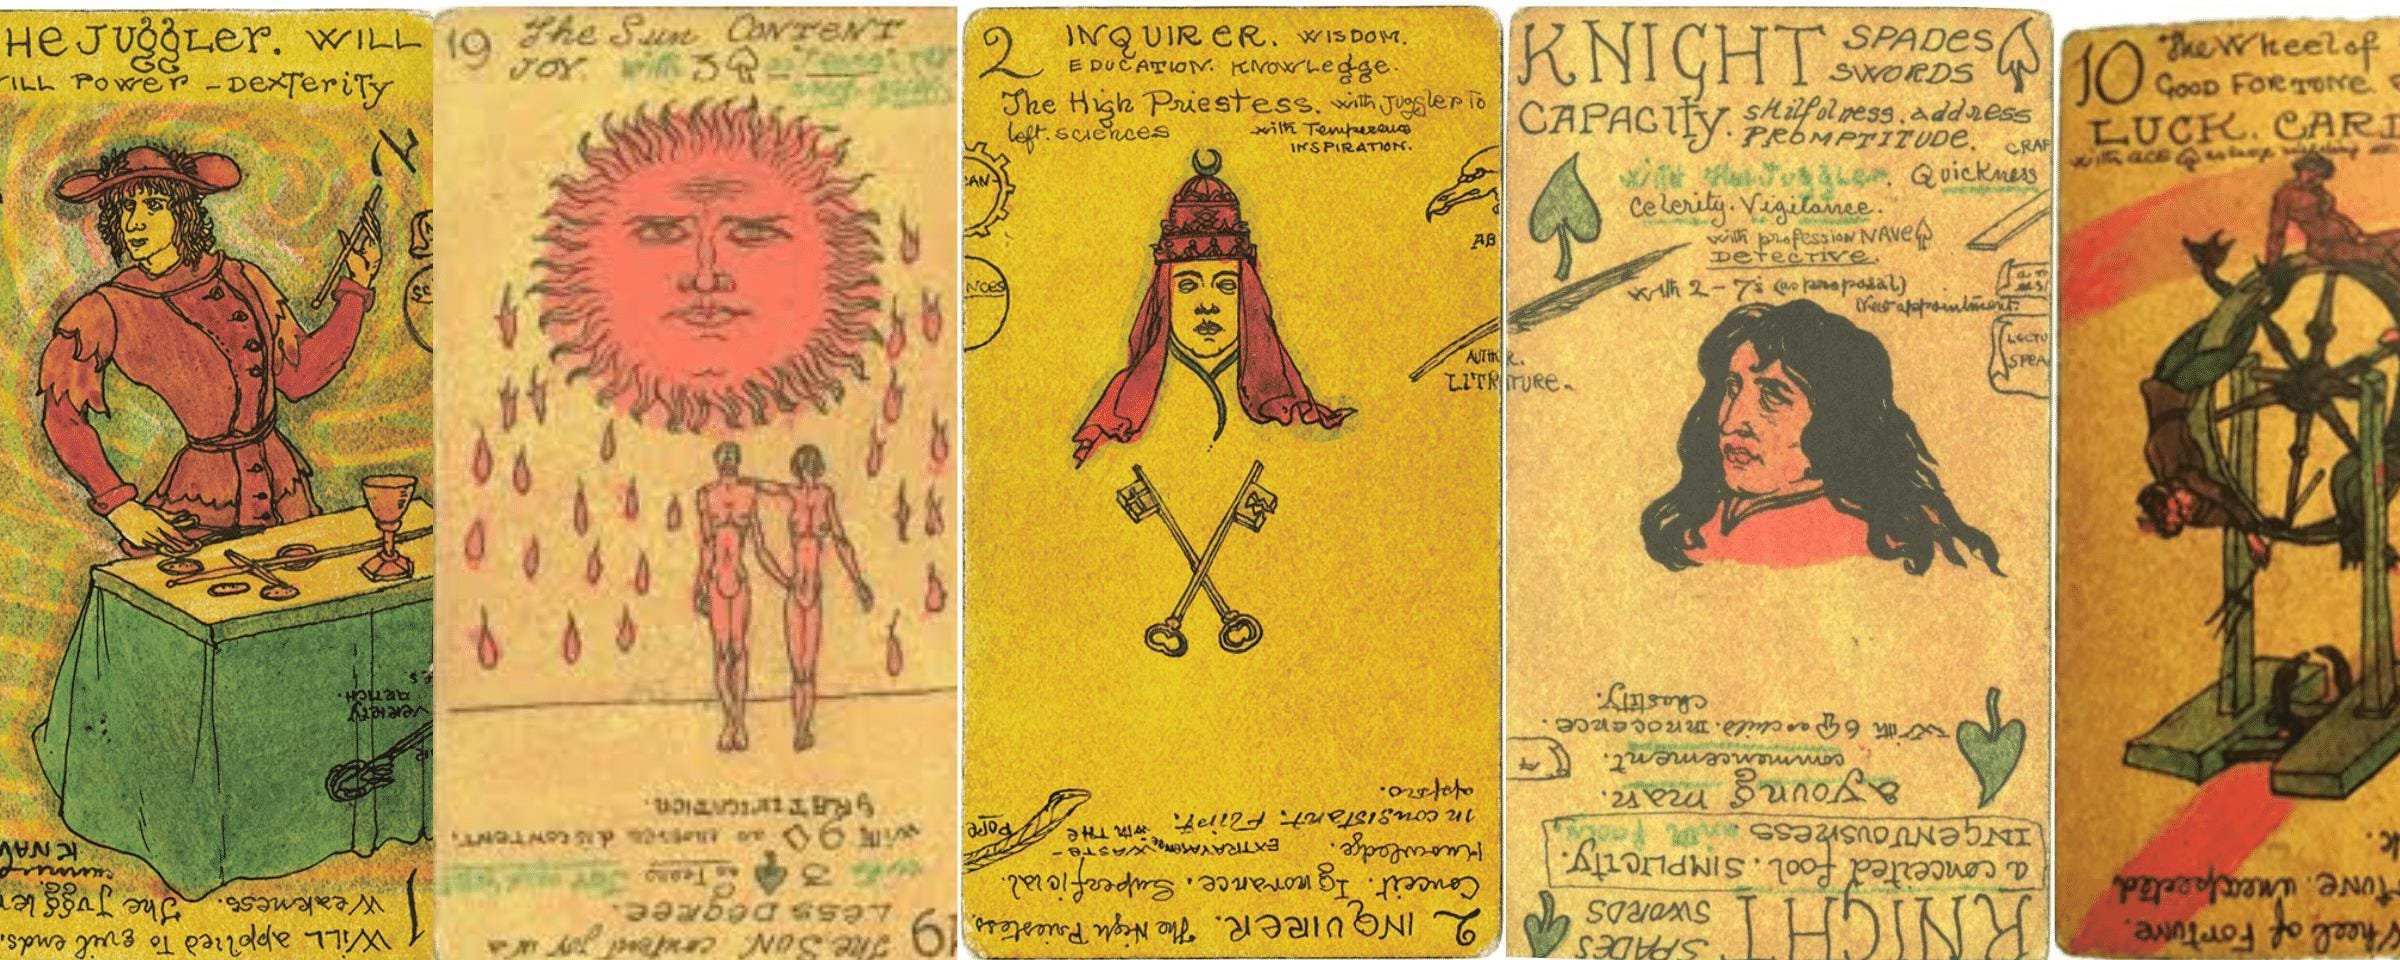 HE JUGGLER. WILL
ILL POWER - DEXTERITY
KNAV
The Juggler
Weakness.
Will applied to evil ends.
1
19 The Sun CONTENT
JOY. with 3
GRATIFICATION.
with 9 as inverse discontent.
3 as Tears
LESS DEGREE.
The SUN. content joy in a
19
2 INQUIRER. WISDOM.
EDUCATION. KNOWLedge.
The High Priestess. with Juggler To
left. sciences
with Temperens
INSPIRATION.
CAN-
NCES
AB
AUTH R.
LITR TURE.
POPE
inconsistant. Flirt.
Knowledge. EXTRAVAGENCE WASTE- WITH THE
Conceit. Ignorance. Superficial.
2 INQUIRER. The High Priestess.
KNIGHT SPADES
SWORDS
CAPACITY. skilfolness. address
PROMPTITUDE.
CRAF
with the Juggler. Quickness
Celerity. Vigilance.
with profession NAVE
DETECTIVE.
with 2-7s (as proposal)
New appointment.
LECTU
SPEA
With 6 as child. INNOCENCE.
chastity.
commencement.
a young man.
INGENUOUSNESS
a conceited fool. SIMPLICITY.
KNIGHT SPADES
SWORDS
10 The Wheel of
GOOD FORTUNE.
LUCK. CARD
with ace
tune. unexpected
Wheel of Fortune.